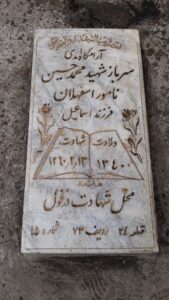 آرامگاه ابدی
سرباز شهید محمد حسین
نامور اصفهلان
فرزند اسماعیل
ولادت شهادت
۱۳۴۰۰ ۱۳۶۰/۲/۱۳
محل شهادت دزفول
قطعه ۲۴ ردیف ۷۳ شماره ۱۵